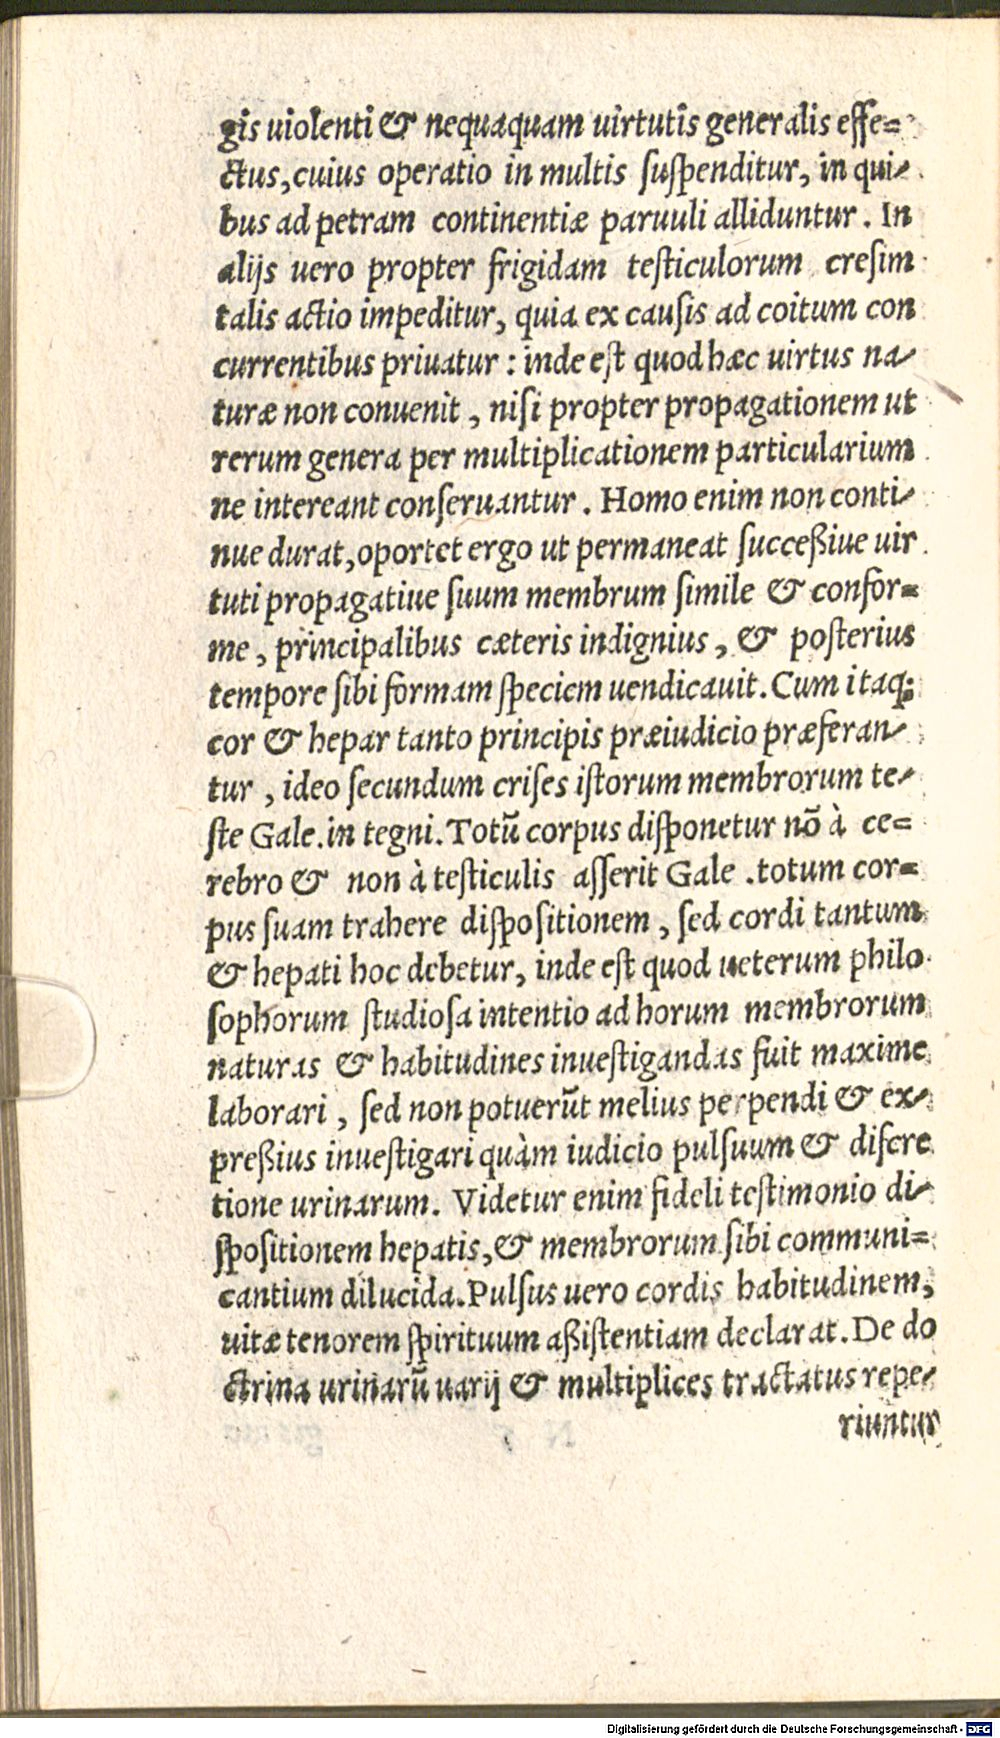 gis uiolenti & nequaquam uirtutis generalis effe=
ctus, cuius operatio in multis suspenditur, in qui-
bus ad petram continentiæ paruuli alliduntur. In
alijs uero propter frigidam testiculorum cresim
talis actio impeditur, quia ex causis ad coitum con
currentibus priuatur: inde est quod hæc uirtus na-
turæ non conuenit, nisi propter propagationem ut
rerum genera per multiplicationem particularium
ne intereant conseruantur. Homo enim non conti-
nue durat, oportet ergo ut permaneat succeßiue uir
tuti propagatiue suum membrum simile & confor=
me, principalibus cæteris indignius, & posterius
tempore sibi formam speciem uendicauit. Cum itaq;
cor & hepar tanto principis præiudicio præferan-
tur, ideo secundum crises istorum membrorum te-
ste Gale. in tegni. Totũ corpus disponetur nõ à ce=
rebro & non à testiculis asserit Gale. totum cor=
pus suam trahere dispositionem, sed cordi tantum
& hepati hoc debetur, inde est quod ueterum philo
sophorum studiosa intentio ad horum membrorum
naturas & habitudines inuestigandas fuit maxime
laborari, sed non potuerũt melius perpendi & ex-
preßius inuestigari quàm iudicio pulsuum & discre
tione urinarum. Videtur enim fideli testimonio di-
spositionem hepatis, & membrorum sibi communi=
cantium dilucida. Pulsus uero cordis habitudinem,
uitæ tenorem spirituum aßistentiam declarat. De do
ctrina urinarũ uarij & multiplices tractatus repe-
riuntur
Digitalisierung gefördert durch die Deutsche Forschungsgemeinschaft - DFG